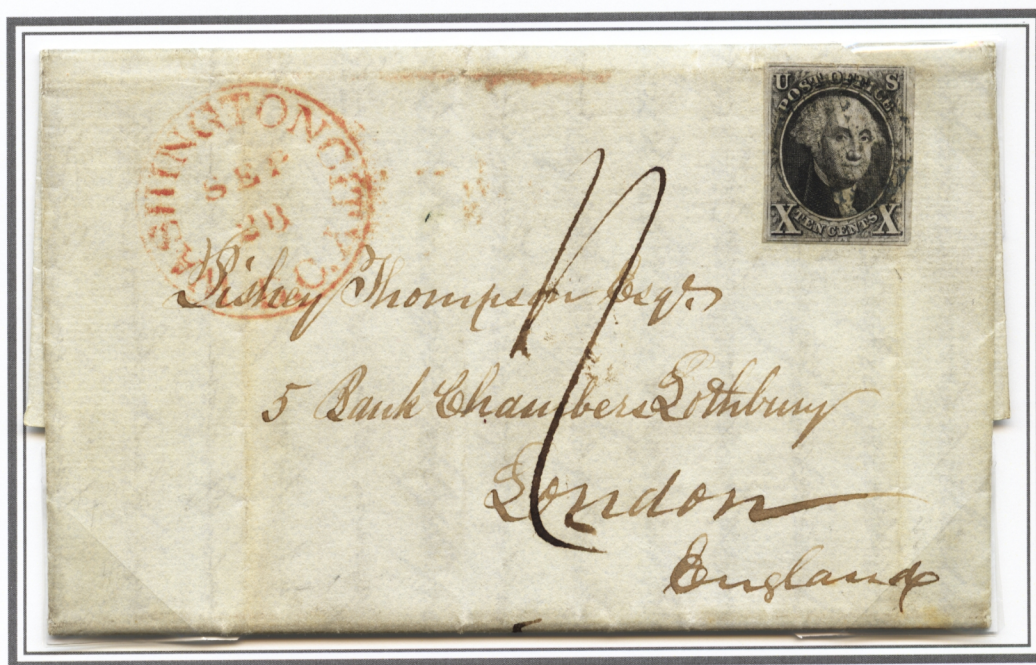 WASHINGTON CITY D.C.
SEP
28
U S
POST OFFICE
X TEN CENTS X
Thompson Esqr
5 Bank Chambers Lothbury
London
England